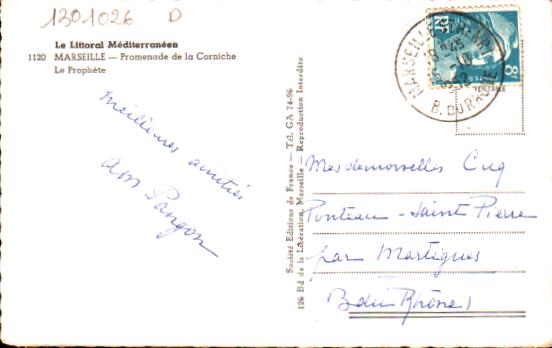 1301026 D
Le Littoral Méditerranéen
1120 MARSEILLE — Promenade de la Corniche
Le Prophète
Meilleures amitiés
Pangon
Société Editions de France — Tél. GA 74-96
126 Bd de la Libération, Marseille — Reproduction Interdite
MARSEILLE
1952
B. DU RHONE
8F
Mesdemoiselles Cuq
Ponteau - Saint Pierre
par Martigues
B du Rhône